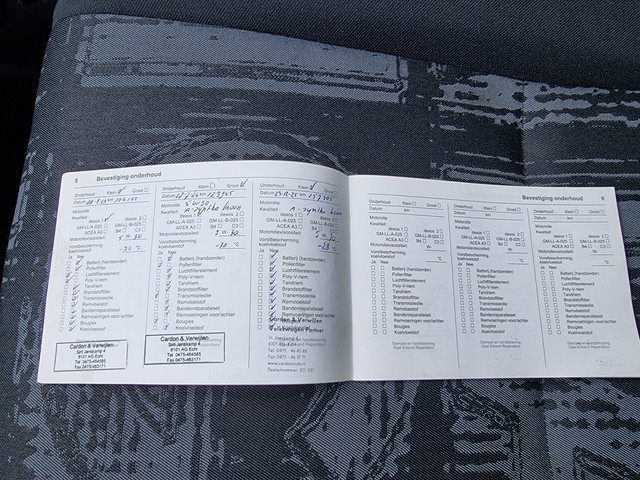 8 Bevestiging onderhoud
Onderhoud Klein Groot
Datum
Motorolie
Kwaliteit
dexos 1 dexos 2
GM-LL-A-025 GM-LL-B-025
ACEA A3 B4 C3
Motorolieviscositeit 5 W- 30
Vorstbescherming,
koelvloeistof -30 °C
Ja Nee
Batterij (handzender)
Pollenfilter
Luchtfilterelement
Poly-V-riem
Tandriem
Brandstoffilter
Transmissieolie
Remvloeistof
Banderenreparatieset
Remvoeringen voor/achter
Bougies
Koelvloeistof
Cardon & Verwijlen
Sint Janskamp 4
6101 AG Echt
Tel. 0475-464585
Fax 0475-462171
Onderhoud Klein Groot
Datum
Motorolie 5W30
Kwaliteit
dexos 1 dexos 2
GM-LL-A-025 GM-LL-B-025
ACEA A3 B4 C3
Motorolieviscositeit 5 W- 30
Vorstbescherming,
koelvloeistof °C
Ja Nee
Batterij (handzender)
Pollenfilter
Luchtfilterelement
Poly-V-riem
Tandriem
Brandstoffilter
Transmissieolie
Remvloeistof
Bandenreparatieset
Remvoeringen voor/achter
Bougies
Koelvloeistof
Cardon & Verwijlen
Sint Janskamp 4
6101 AG Echt
Tel. 0475-464585
Fax 0475-462171
Onderhoud Klein Groot
Datum
Motorolie
Kwaliteit
dexos 1 dexos 2
GM-LL-A-025 GM-LL-B-025
ACEA A3 B4 C3
Motorolieviscositeit 5 W- 30
Vorstbescherming,
koelvloeistof -28 °C
Ja Nee
Batterij (handzender)
Pollenfilter
Luchtfilterelement
Poly-V-riem
Tandriem
Brandstoffilter
Transmissieolie
Remvloeistof
Bandenreparatieset
Remvoeringen voor/achter
Cardon & Verwijlen
Volkswagen Partner
Bevestiging onderhoud 9
Onderhoud Klein Groot
Datum km
Motorolie
Kwaliteit
dexos 1 dexos 2
GM-LL-A-025 GM-LL-B-025
ACEA A3 B4 C3
Motorolieviscositeit W-
Vorstbescherming,
koelvloeistof °C
Ja Nee
Batterij (handzender)
Pollenfilter
Luchtfilterelement
Poly-V-riem
Tandriem
Brandstoffilter
Transmissieolie
Remvloeistof
Bandenreparatieset
Remvoeringen voor/achter
Bougies
Koelvloeistof
Stempel en handtekening
Opel Erkend Reparateur
Onderhoud Klein Groot
Datum km
Motorolie
Kwaliteit
dexos 1 dexos 2
GM-LL-A-025 GM-LL-B-025
ACEA A3 B4 C3
Motorolieviscositeit W-
Vorstbescherming,
koelvloeistof °C
Ja Nee
Batterij (handzender)
Pollenfilter
Luchtfilterelement
Poly-V-riem
Tandriem
Brandstoffilter
Transmissieolie
Remvloeistof
Bandenreparatieset
Remvoeringen voor/achter
Bougies
Koelvloeistof
Stempel en handtekening
Opel Erkend Reparateur
Onderhoud Klein Groot
Datum km
Motorolie
Kwaliteit
dexos 1 dexos 2
GM-LL-A-025 GM-LL-B-025
ACEA A3 B4 C3
Motorolieviscositeit W-
Vorstbescherming,
koelvloeistof °C
Ja Nee
Batterij (handzender)
Pollenfilter
Luchtfilterelement
Poly-V-riem
Tandriem
Brandstoffilter
Transmissieolie
Remvloeistof
Bandenreparatieset
Remvoeringen voor/achter
Bougies
Koelvloeistof
Stempel en handtekening
Opel Erkend Reparateur